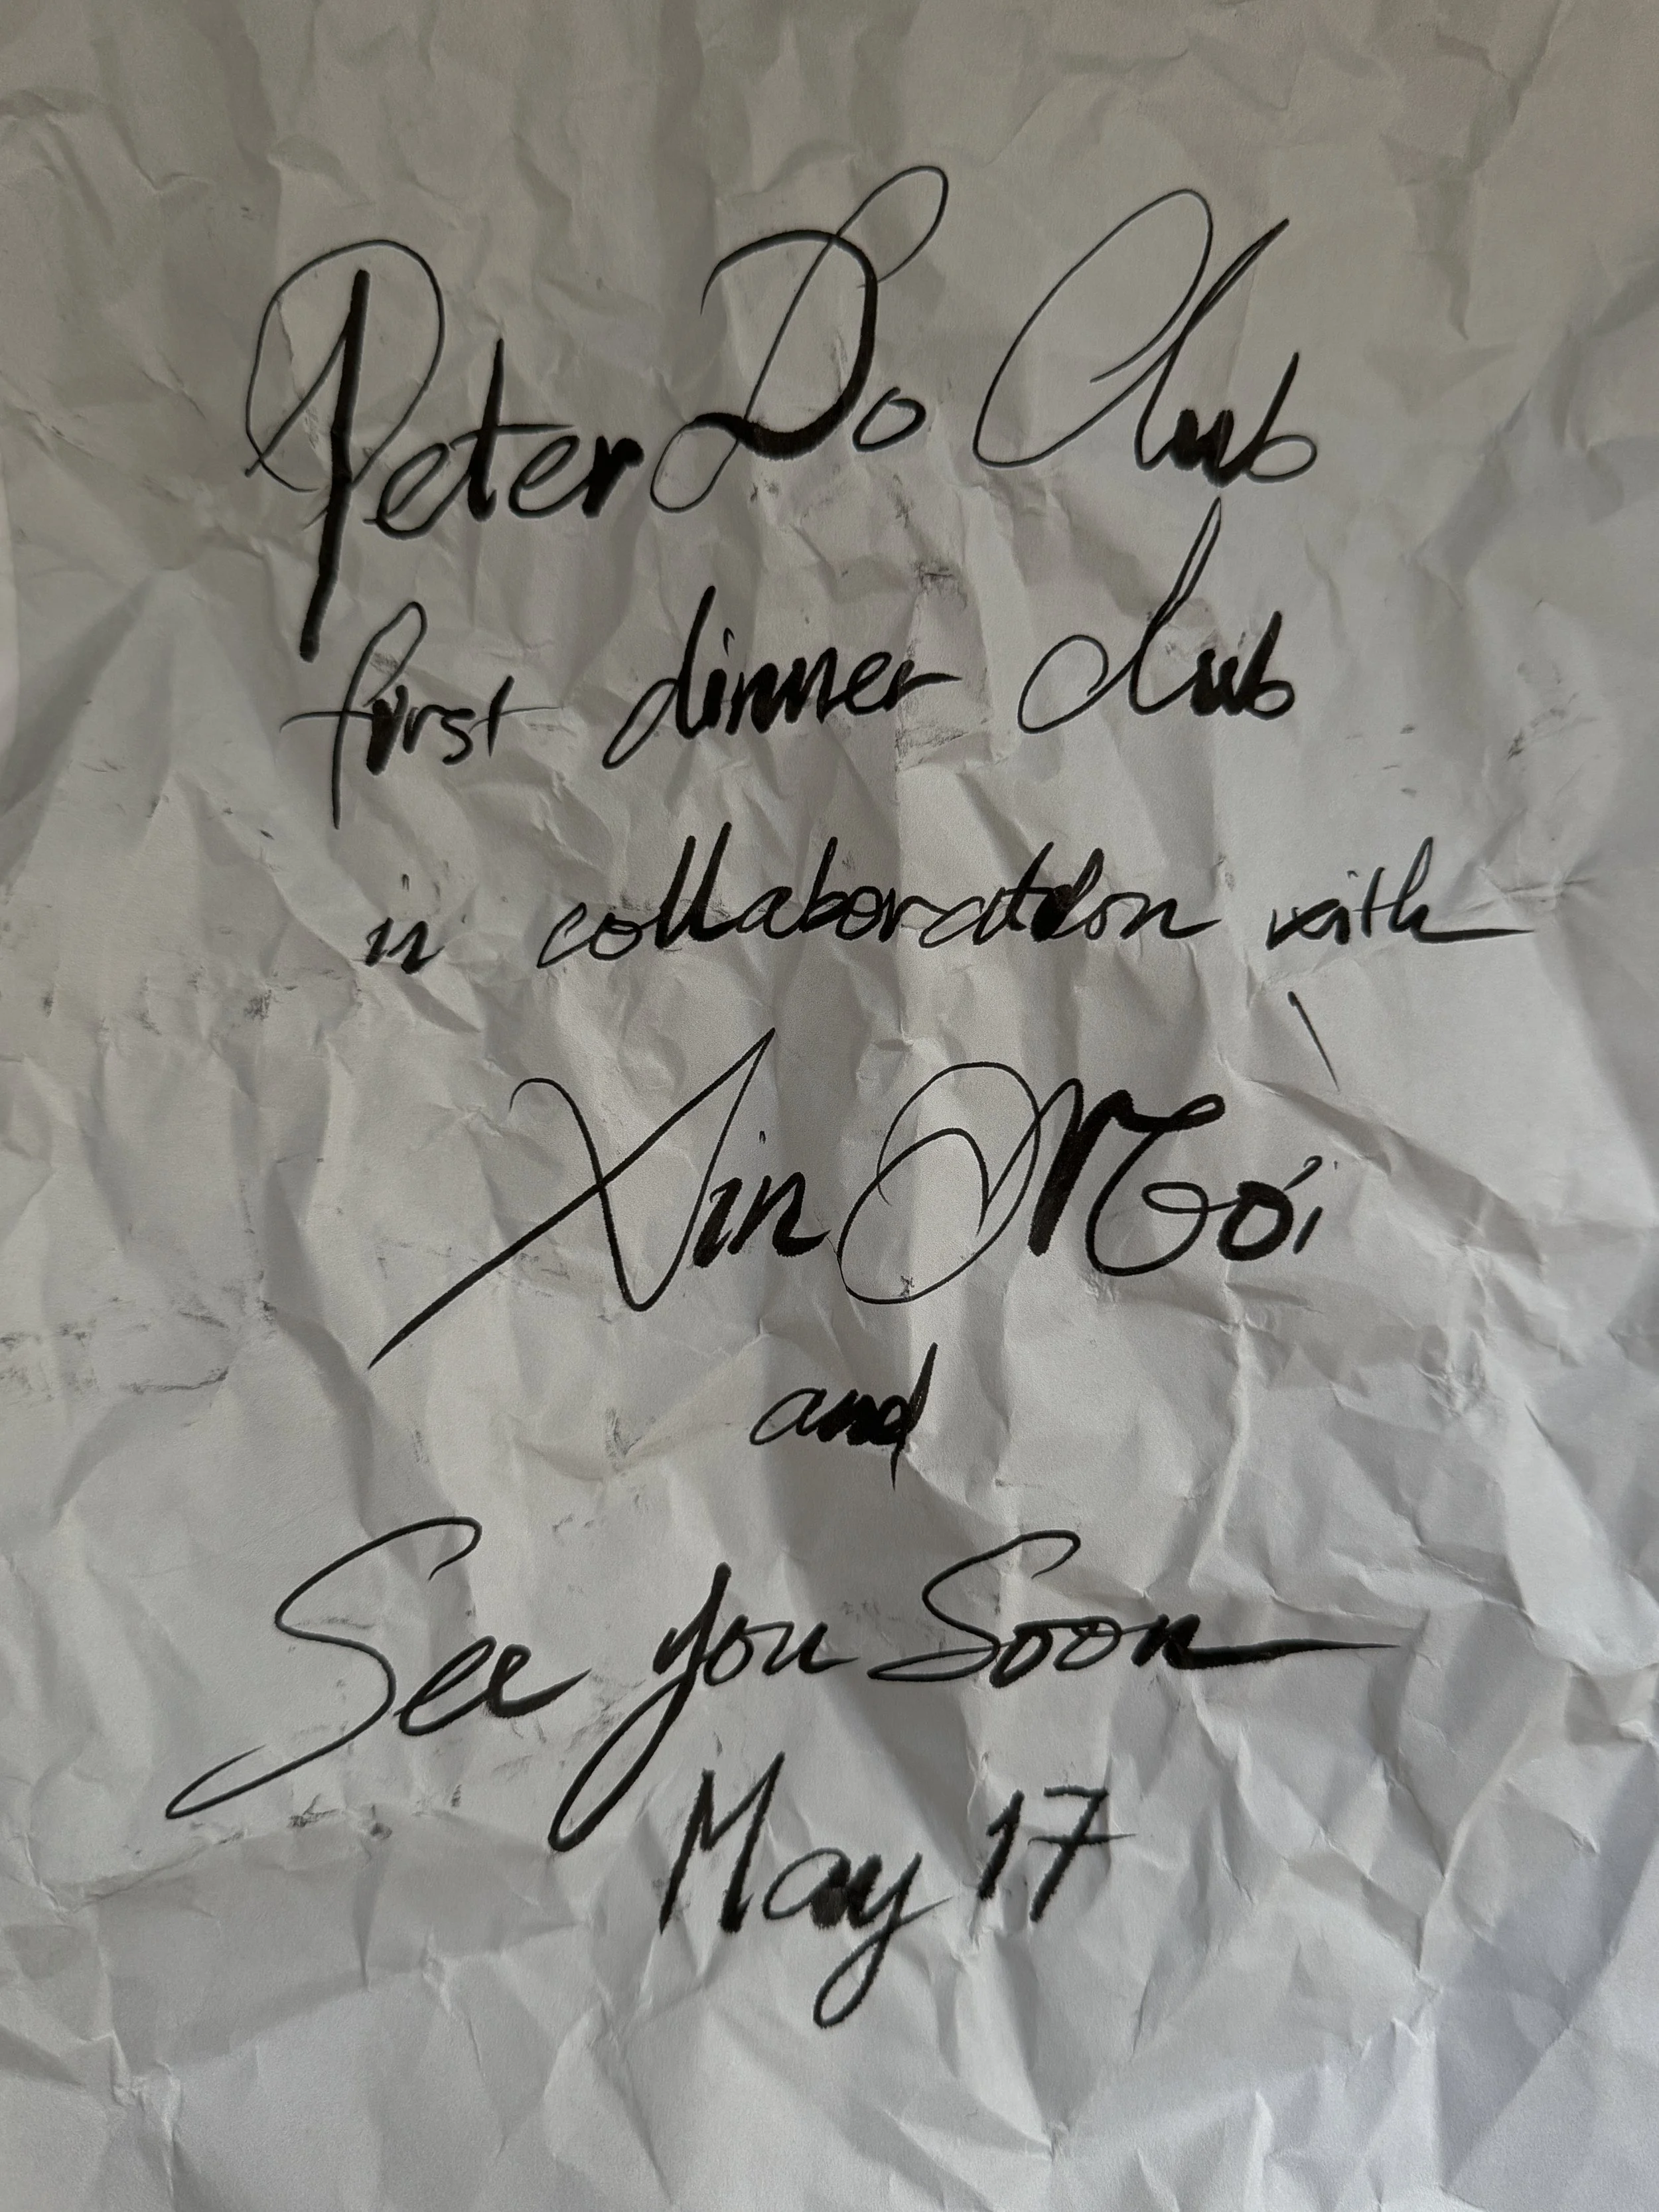 Peter Do Club
first dinner club
in collaboration with
Xin Mời
and
See you Soon
May 17